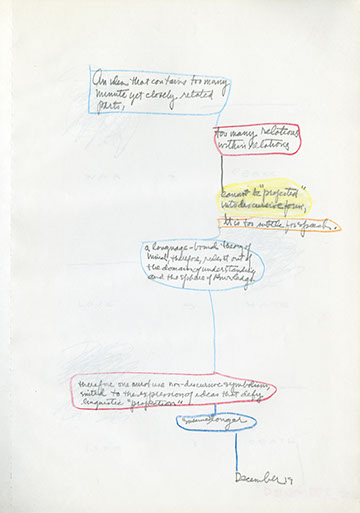 An idea that contains too many
minute yet closely related
parts,
too many relations
within relations
cannot be "projected"
into discursive form,
it is too subtle for speech.
a language-bound theory of
mind, therefore, rules it out of
the domain of understanding
and the sphere of knowledge.
therefore one must use non-discursive symbolism,
suited to the expression of ideas that defy
linguistic "projection"
Susanne Langer
December 19